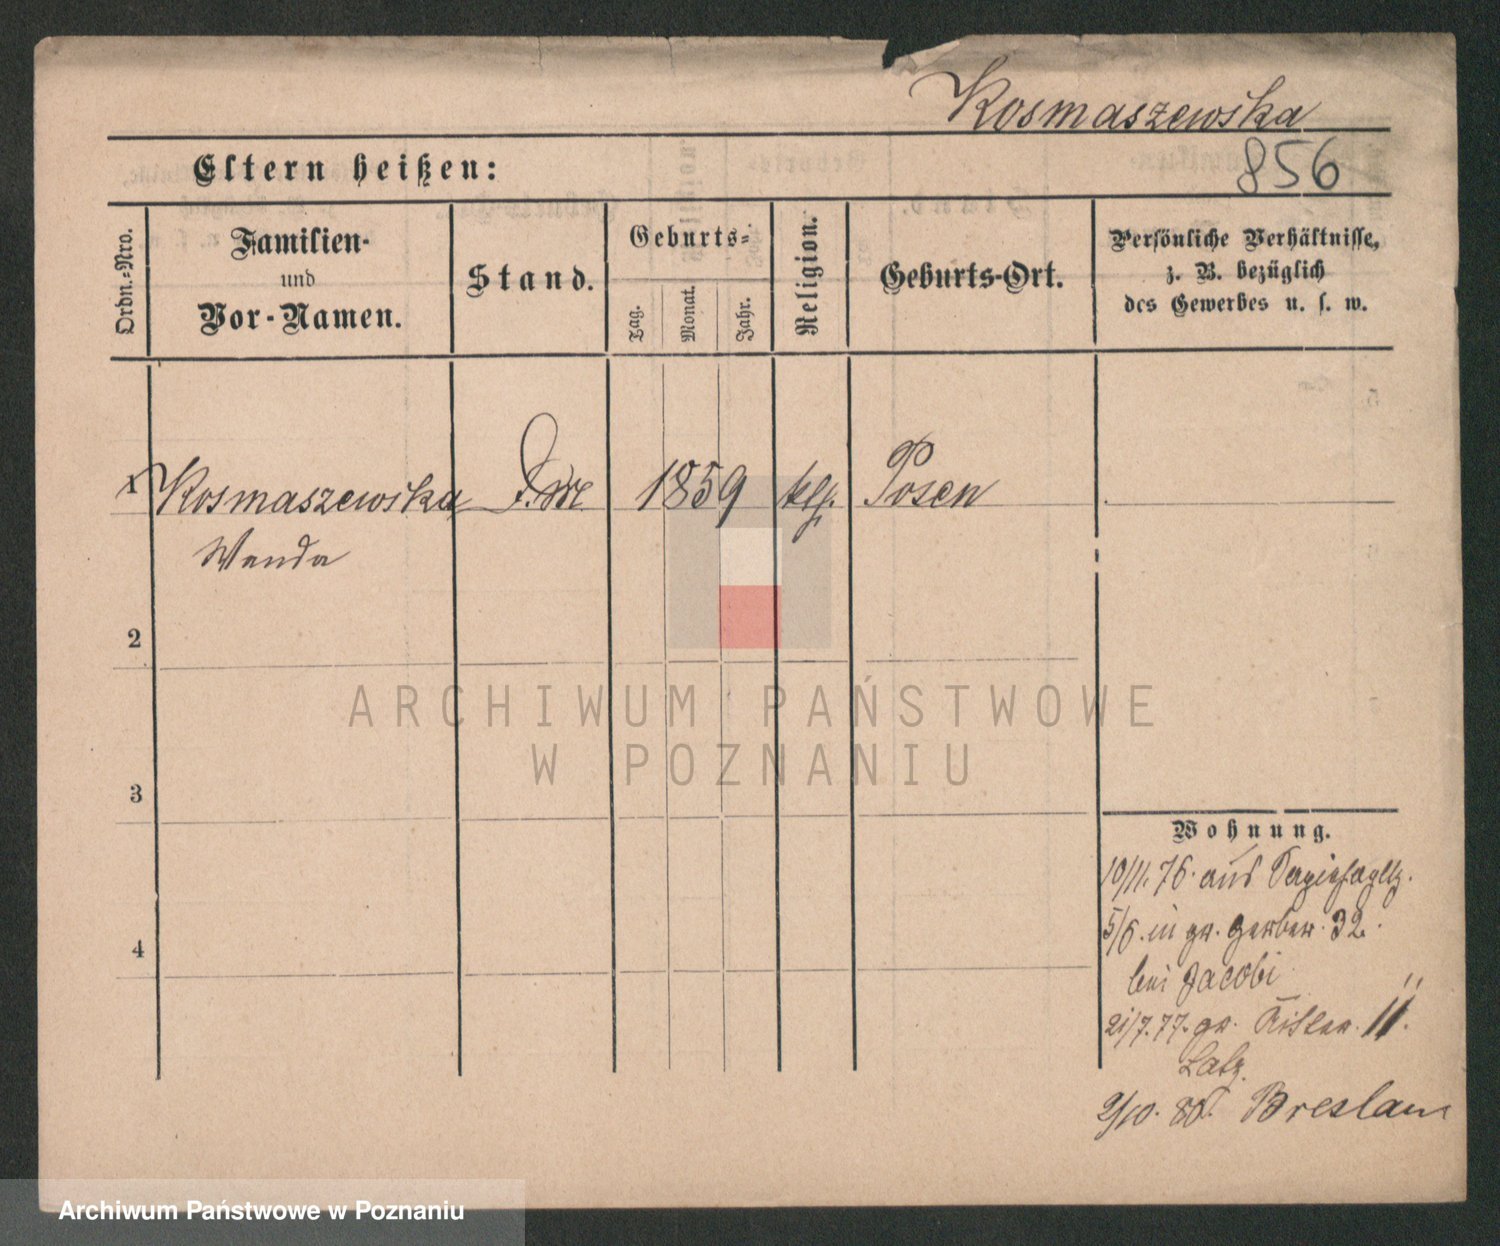 Kosmaszewska
856
Eltern heißen:
Ordn.-Nro.
Familien-
und
Vor-Namen.
Stand.
Geburts-
Tag.
Monat.
Jahr.
Religion.
Geburts-Ort.
Persönliche Verhältnisse,
z. B. bezüglich
des Gewerbes u. s. w.
1 Kosmaszewska 1859 Posen
Wanda
2
3
4
Wohnung.
10/11. 76. aus
5/6. in gr. Gerber. 32.
bei Jacobi
21/7. 77. gr. Ritter. 11.
2/10. 80. Breslau
ARCHIWUM PAŃSTWOWE
W POZNANIU
Archiwum Państwowe w Poznaniu